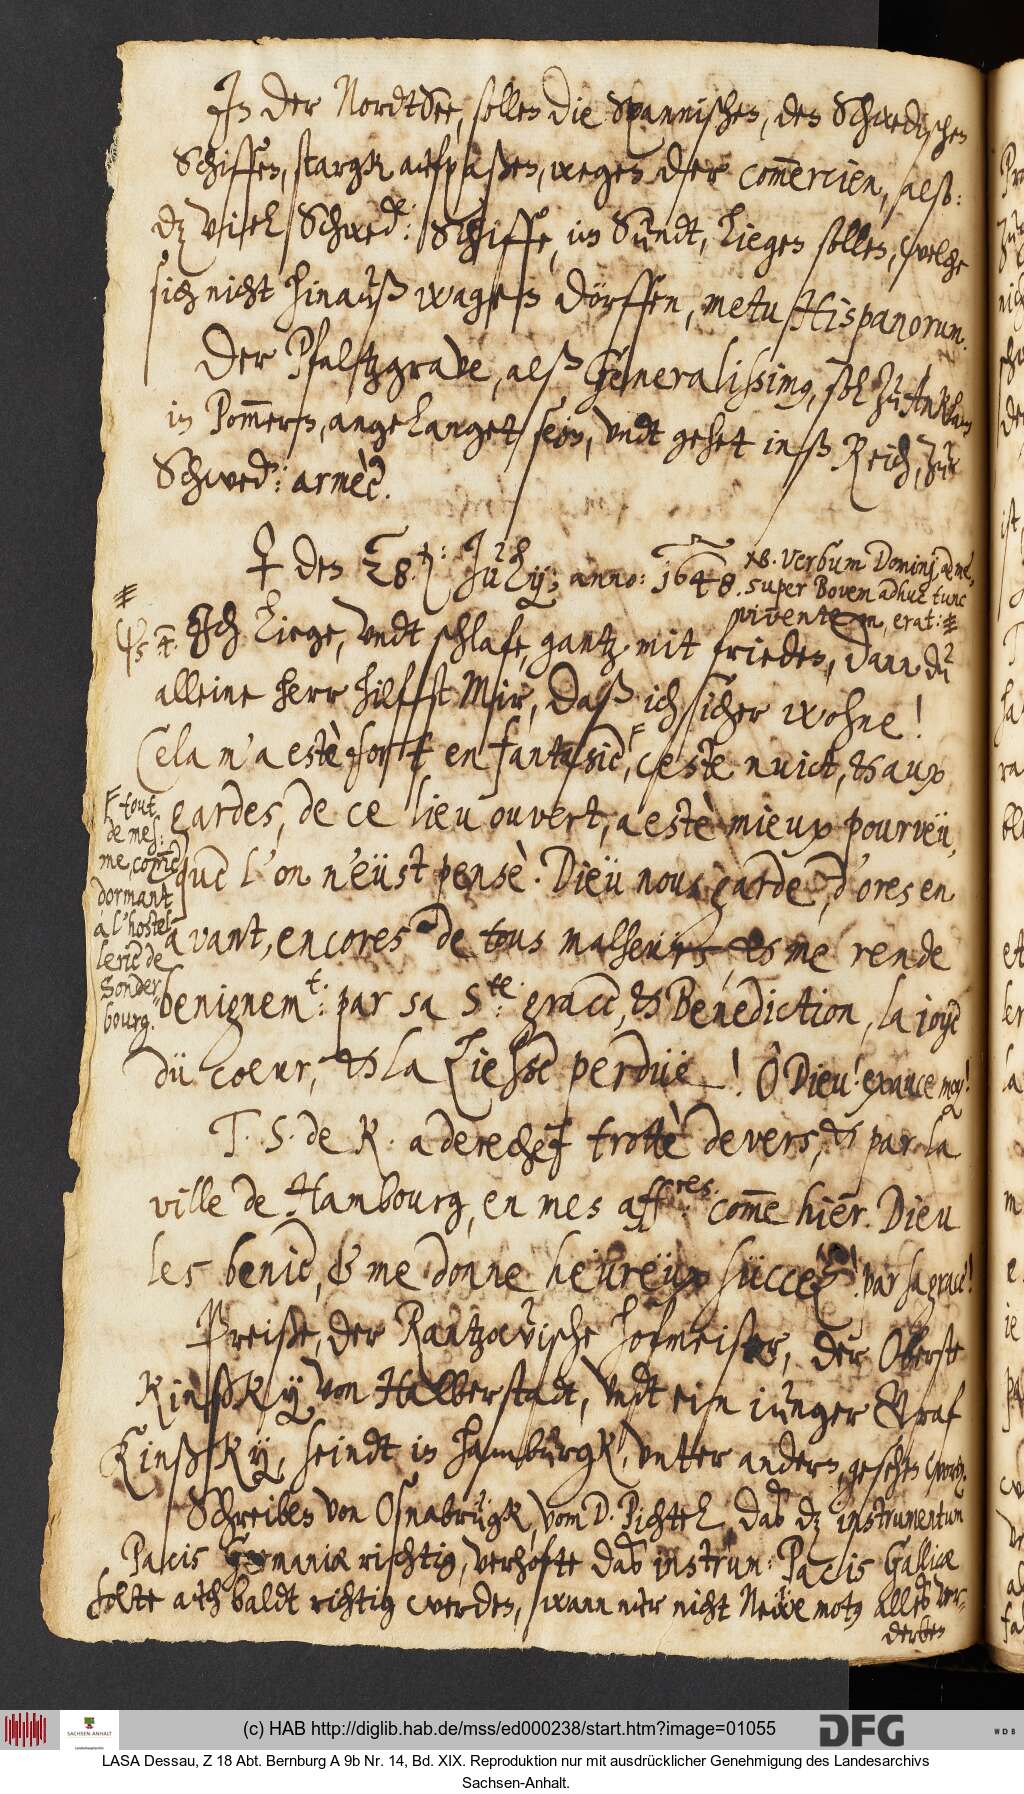 In der NordtSee, sollen die Spannischen, den Schwedischen
Schiffen, stargk aufpaßen, wegen der com̄ercien, alß:
dz viel Schwed: Schiffe, im Sundt, liegen sollen, welche
sich nicht hinauß wagen dörffen, metu Hispanorum.
Der Pfaltzgrave, alß Generalissimus, sol zu Anklam
in Pom̄ern, angelanget sein, undt gehet inß Reich, zur
Schwed: armèe.
♀ den 28. Julij; anno: 1648.
NB. Verbum Dominj, ad me,
super Bovem adhuc tunc
viventem, erat:
Ps 4. Ich liege, undt schlafe, gantz mit frieden, dann du
alleine herr hilffst Mir, daß ich sicher wohne!
Cela m'a estè fort en fantasie, ceste nuict, & aux
gardes, de ce lieu ouvert, a estè mieux pourvëu,
que l'on n'eüst pensè. Dieü nous garde, d'ores en
avant, encores de tous malheurs, & me rende
benignem.t: par sa S.te: grace, & Benediction, la joye
dü coeur, & la liesse perdüe! Ô Dieu! exauce moy!
tout
de mes-
me, com̄e
dormant
á l'hostel-
lerie de
Sonder-
bourg.
T. S. de R. a derechef trottè devers, & par la
ville de Hambourg, en mes aff.res: com̄e hier. Dieu
les benie, & me donne heüreüx sücceß! par sa grace!
Preiße, der Rantzowische Hofmeister, der Oberste
Kinßky von Halberstadt, undt ein iunger Graf
Kinßky, seindt in hamburgk, unter andern, gesehen worden.
Schreiben von Osnabrugk, vom D. Pichtel, daß dz instrumentum
Pacis Germaniæ richtig, verhofte daß instrum: Pacis Gallicæ
solte auch baldt richtig werden, wann nur nicht Newe motus alles ver-
derben
(c) HAB http://diglib.hab.de/mss/ed000238/start.htm?image=01055
SACHSEN-ANHALT
DFG
WDB
LASA Dessau, Z 18 Abt. Bernburg A 9b Nr. 14, Bd. XIX. Reproduktion nur mit ausdrücklicher Genehmigung des Landesarchivs
Sachsen-Anhalt.